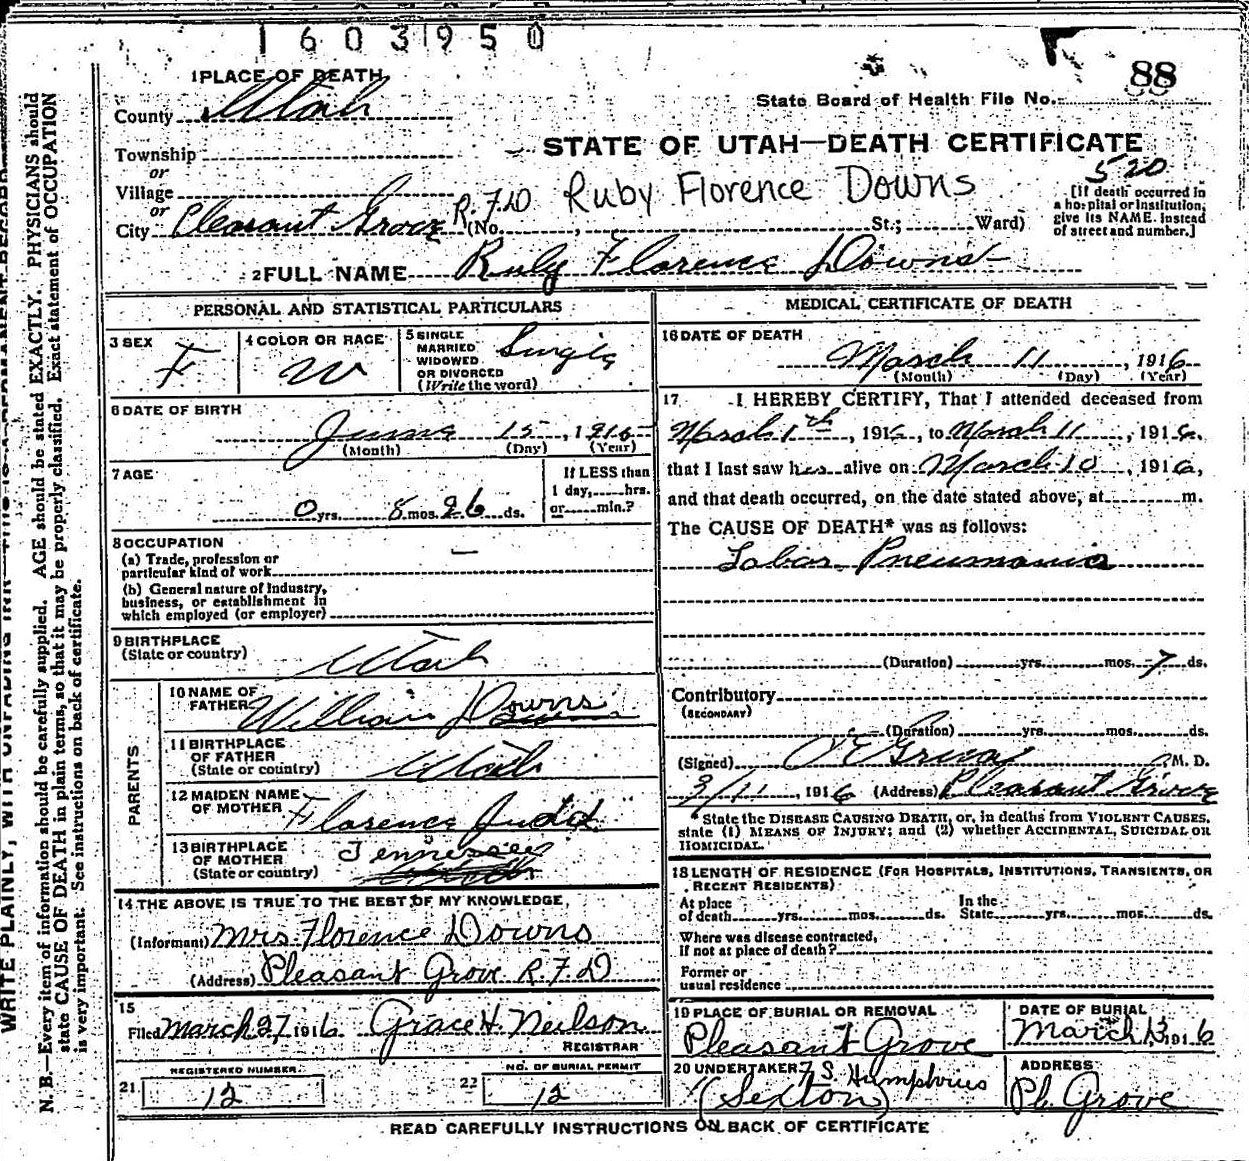 1603950
1 PLACE OF DEATH
County Utah
88
State Board of Health File No.
STATE OF UTAH—DEATH CERTIFICATE
Township
or
Village
or
City Pleasant Grove R.F.D (No. , St.; Ward)
Ruby Florence Downs
520
[If death occurred in
a hospital or institution,
give its NAME instead
of street and number.]
2 FULL NAME Ruby Florence Downs
PERSONAL AND STATISTICAL PARTICULARS
3 SEX
F
4 COLOR OR RACE
W
5 SINGLE
MARRIED
WIDOWED
OR DIVORCED
(Write the word)
Single
6 DATE OF BIRTH
June 15, 1915
(Month) (Day) (Year)
7 AGE
0 yrs. 8 mos. 26 ds.
If LESS than
1 day, hrs.
or min.?
8 OCCUPATION
(a) Trade, profession or
particular kind of work
(b) General nature of industry,
business, or establishment in
which employed (or employer)
9 BIRTHPLACE
(State or country)
Utah
PARENTS
10 NAME OF
FATHER
William Downs
11 BIRTHPLACE
OF FATHER
(State or country)
Utah
12 MAIDEN NAME
OF MOTHER
Florence Judd
13 BIRTHPLACE
OF MOTHER
(State or country)
Tennessee
14 THE ABOVE IS TRUE TO THE BEST OF MY KNOWLEDGE
(Informant) Mrs. Florence Downs
(Address) Pleasant Grove R.F.D
15
Filed March 27, 1916 Grace H. Neilson
REGISTRAR
REGISTERED NUMBER
21 12
NO. OF BURIAL PERMIT
22 12
MEDICAL CERTIFICATE OF DEATH
16 DATE OF DEATH
March 11, 1916
(Month) (Day) (Year)
17 I HEREBY CERTIFY, That I attended deceased from
March 1th, 1916, to March 11, 1916,
that I last saw her alive on March 10, 1916,
and that death occurred, on the date stated above, at m.
The CAUSE OF DEATH* was as follows:
Lobar Pneumonia
(Duration) yrs. mos. 7 ds.
Contributory
(SECONDARY)
(Duration) yrs. mos. ds.
(Signed) M. D.
3/11, 1916 (Address) Pleasant Grove
*State the DISEASE CAUSING DEATH, or, in deaths from VIOLENT CAUSES,
state (1) MEANS OF INJURY; and (2) whether ACCIDENTAL, SUICIDAL OR
HOMICIDAL.
18 LENGTH OF RESIDENCE (FOR HOSPITALS, INSTITUTIONS, TRANSIENTS, OR
RECENT RESIDENTS)
At place
of death yrs. mos. ds.
In the
State yrs. mos. ds.
Where was disease contracted,
if not at place of death?
Former or
usual residence
19 PLACE OF BURIAL OR REMOVAL
Pleasant Grove
DATE OF BURIAL
March 13 1916
20 UNDERTAKER S Humphries
(Sexton)
ADDRESS
Pl. Grove
READ CAREFULLY INSTRUCTIONS ON BACK OF CERTIFICATE
WRITE PLAINLY, WITH UNFADING INK—THIS IS A PERMANENT RECORD
N. B.—Every item of information should be carefully supplied. AGE should be stated EXACTLY. PHYSICIANS should
state CAUSE OF DEATH in plain terms, so that it may be properly classified. Exact statement of OCCUPATION
is very important. See instructions on back of certificate.